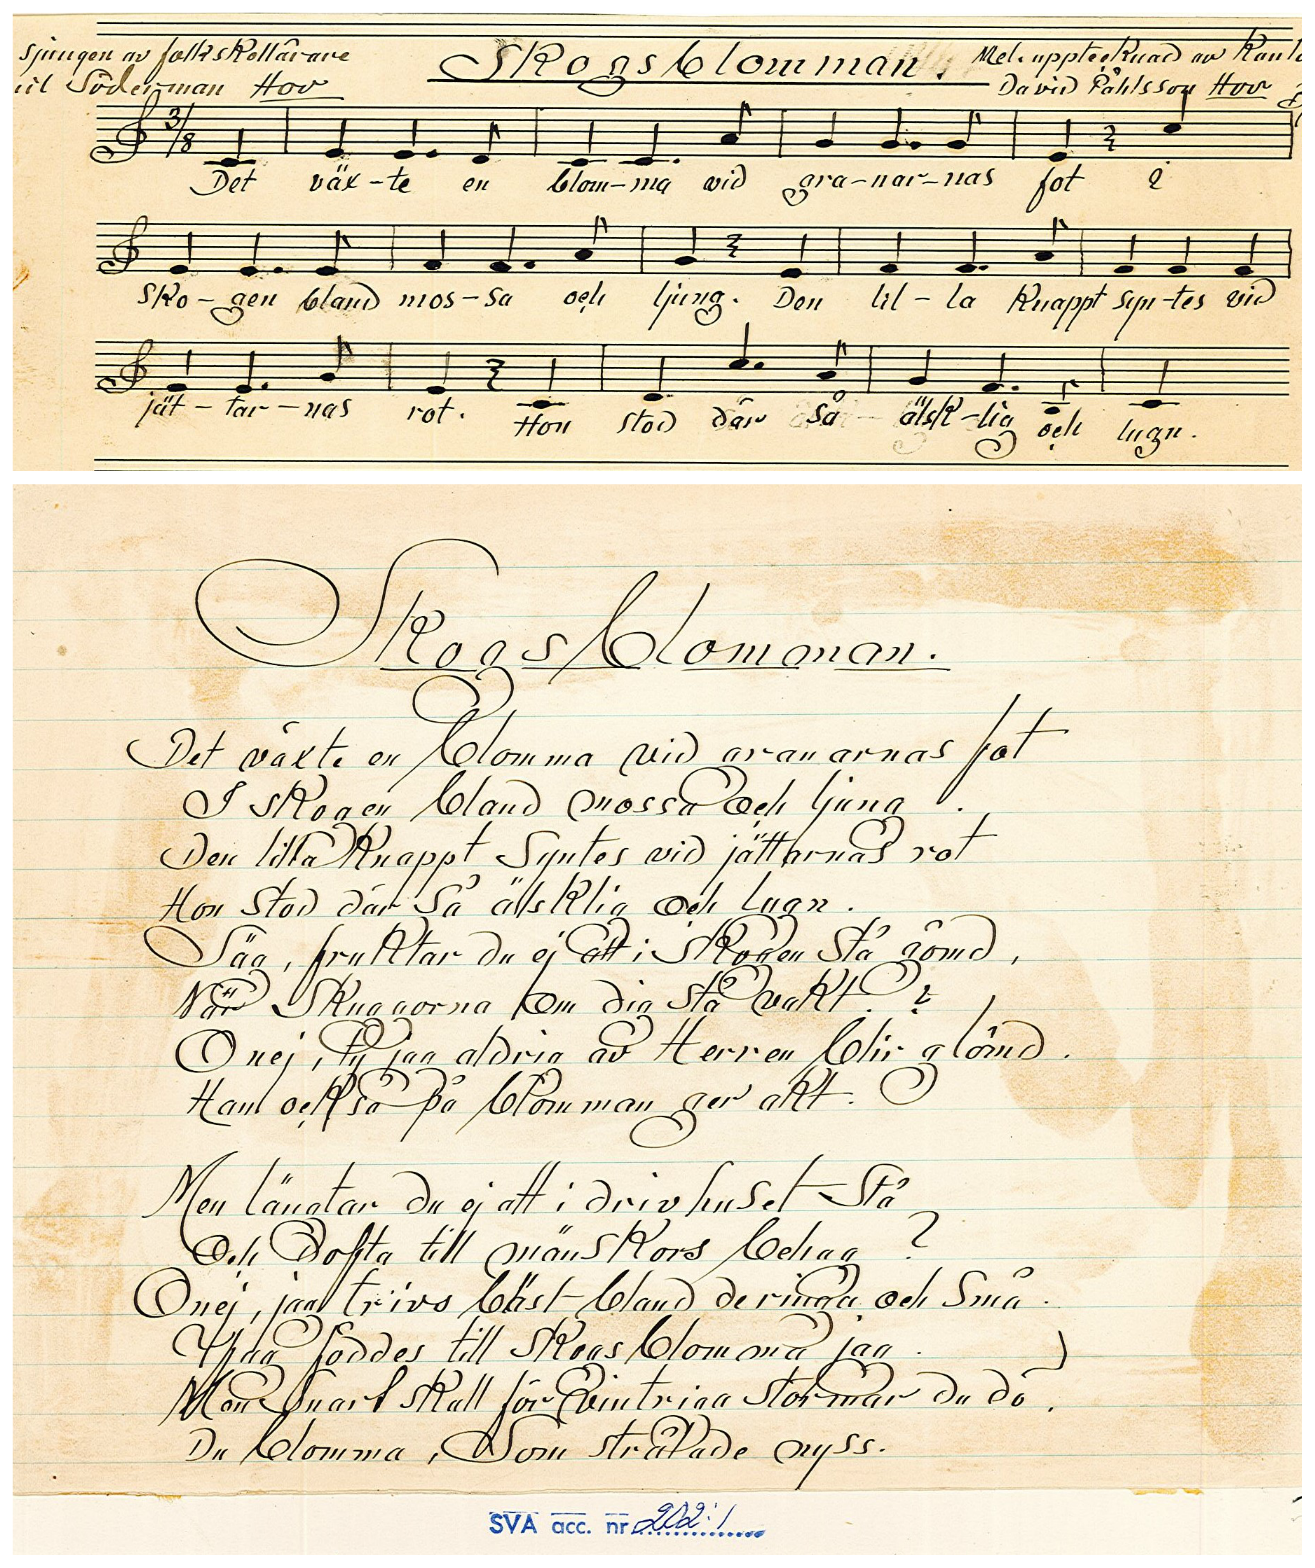 sjungen av folkskollärare
Söderman Hov
Skogsblomman.
Mel. upptecknad av
David Påhlsson Hov
3/8
Det väx-te en blom-ma vid gra-nar-nas fot i
sko-gen bland mos-sa och ljung. Den lil-la knappt syn-tes vid
jät-tar-nas rot. Hon stod där så älsk-lig och lugn.
Skogsblomman.
Det växte en blomma vid granarnas fot
I skogen bland mossa och ljung.
Den lilla knappt syntes vid jättarnas rot
Hon stod där så älsklig och lugn.
Säg, fruktar du ej att i skogen stå gömd,
När skuggorna om dig stå vakt.?
O nej, ty jag aldrig av Herren blir glömd.
Han också på blomman ger akt.
Men längtar du ej att i drivhuset stå
Och dofta till mänskors behag?
O nej, jag trivs bäst bland de ringa och små.
Ty jag föddes till skogsblomma jag.
Men snart skall för vintriga stormar du dö.
Du blomma, som strålade nyss.
SVA acc. nr 202:1